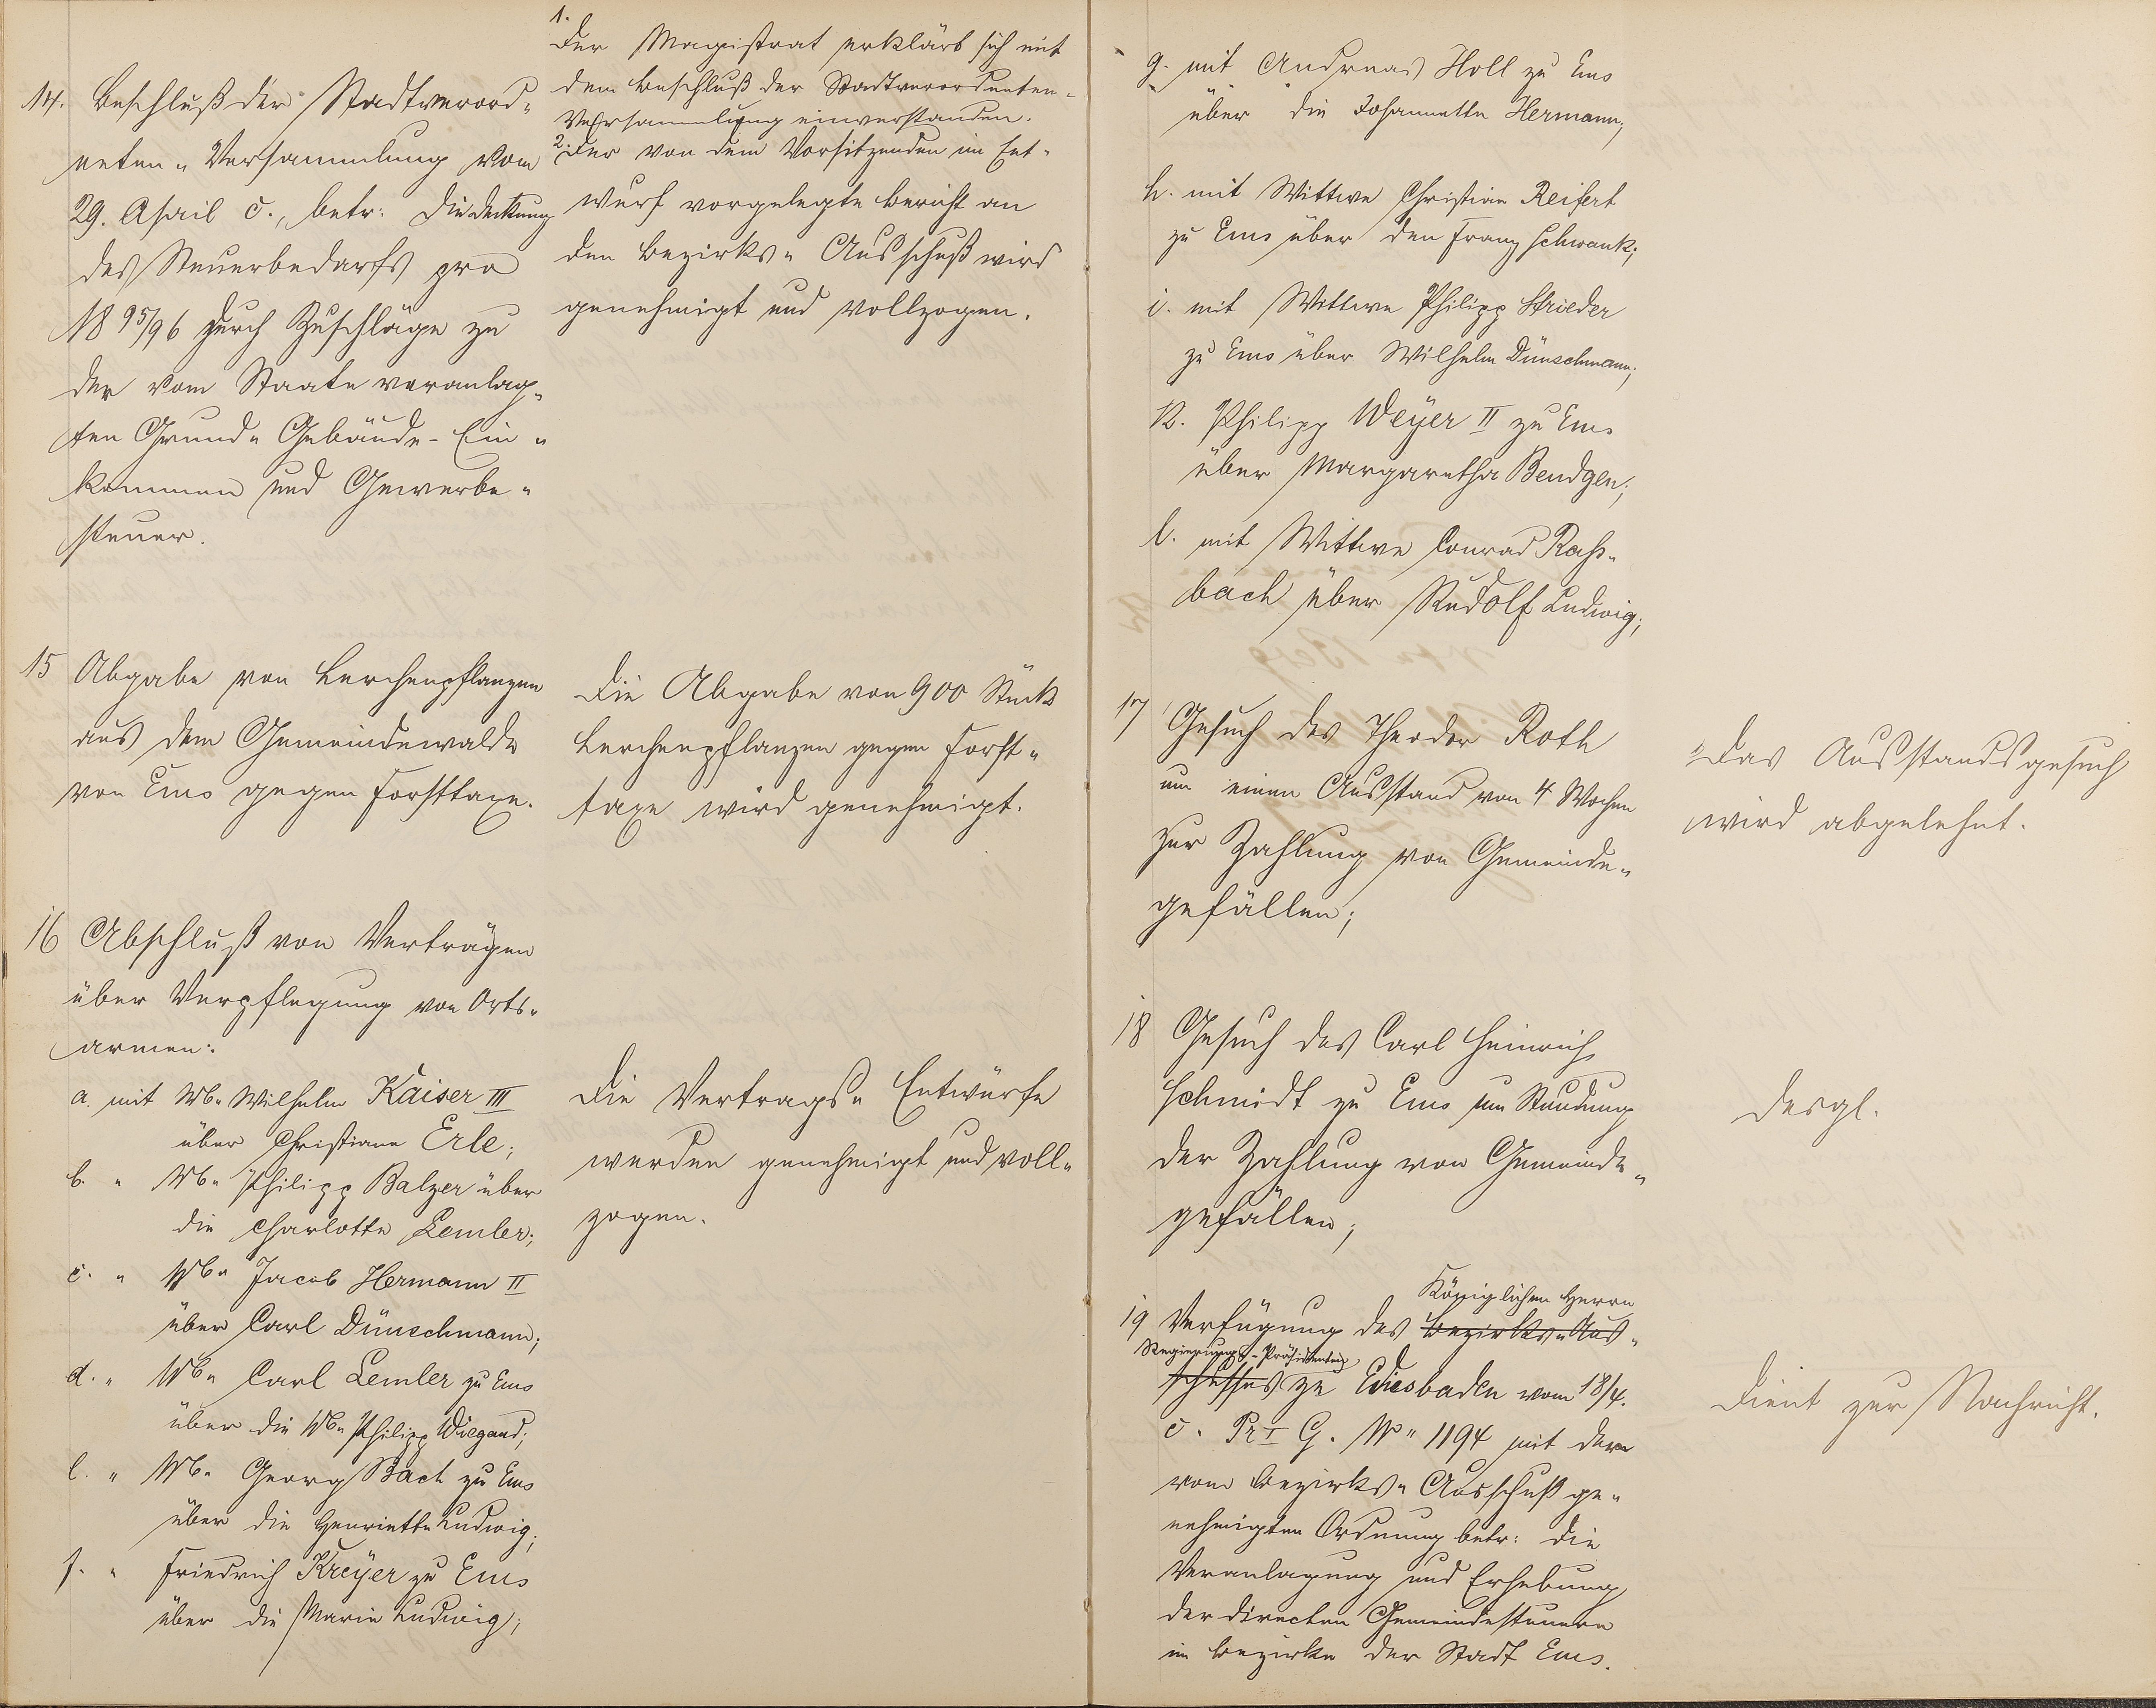 14. Beschluß der Stadtverord-
neten-Versammlung vom
29. April c., betr: die Deckung
des Steuerbedarfs pro
1895/96 durch Zuschläge zu
der vom Staate veranlag-
ten Grund- Gebäude- Ein-
kommen und Gewerbe-
steuer.
1.
Der Magistrat erklärt sich mit
dem Beschluß der Stadtverordneten-
Versammlung einverstanden.
2. Der von dem Vorsitzenden im Ent-
wurf vorgelegte Bericht an
den Bezirks-Ausschuß wird
genehmigt und vollzogen.
15 Abgabe von Lerchenpflanzen
aus dem Gemeindewalde
von Ems gegen Forsttaxe.
Die Abgabe von 900 Stück
Lerchenpflanzen gegen Forst-
taxe wird genehmigt.
16 Abschluß von Verträgen
über Verpflegung von Orts-
armen:
a. mit Ww. Wilhelm Kaiser III
über Christiane Erle;
b. " Ww. Philipp Balzer über
die Charlotte Lemler;
c. " Ww. Jacob Hermann II
über Carl Dünschmann;
d. " Ww. Carl Lemler zu Ems
über die Ww. Philipp Wiegand;
e. " Ww. Georg Bach zu Ems
über die Henriette Ludwig;
f. " Friedrich Kreyer zu Ems
über die Marie Ludwig;
Die Vertrags-Entwürfe
werden genehmigt und voll-
zogen.
g. mit Andreas Holl zu Ems
über die Johannette Hermann;
h. mit Wittwe Christian Reifert
zu Ems über den Franz Schwank;
i. mit Wittwe Philipp Strieder
zu Ems über Wilhelm Dünschmann;
k. Philipp Weyer II zu Ems
über Margaretha Bendgen;
l. mit Wittwe Conrad Rass-
bach über Rudolf Ludwig;
17 Gesuch des Theodor Roth
um einen Ausstand von 4 Wochen
zur Zahlung von Gemeinde-
gefällen;
Das Ausstandsgesuch
wird abgelehnt.
18 Gesuch des Carl Heinrich
Schmidt zu Ems um Stundung
der Zahlung von Gemeinde-
gefällen;
Desgl.
Königlichen Herrn
19 Verfügung des Bezirks-Aus-
Regierungs-Präsidenten
schusses zu Wiesbaden vom 18/4.
c. Pr I G. No 1194 mit der
vom Bezirks-Ausschuß ge-
nehmigten Ordnung betr: die
Veranlagung und Erhebung
der directen Gemeindesteuern
im Bezirke der Stadt Ems.
Dient zur Nachricht.